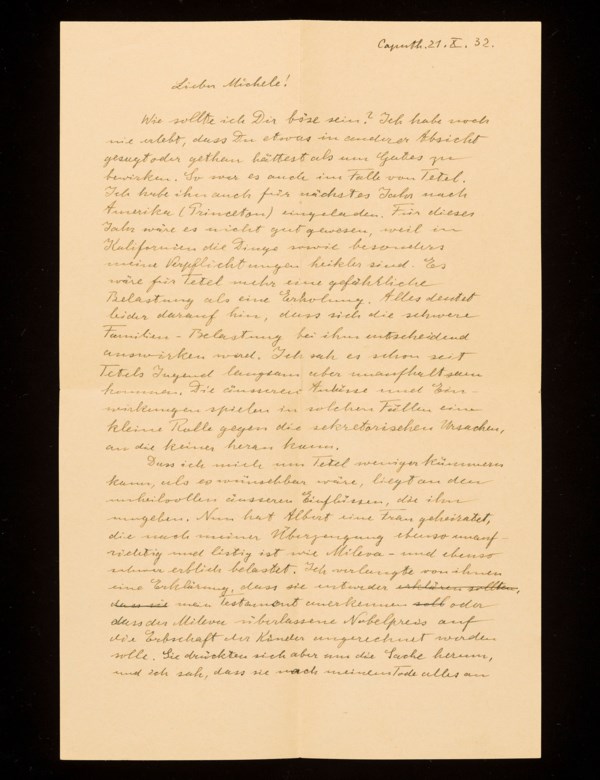 Caputh. 21. X. 32.
Lieber Michele!
Wie sollte ich Dir böse sein? Ich habe noch
nie erlebt, dass Du etwas in anderer Absicht
gesagt oder gethan hättest als um Gutes zu
bewirken. So war es auch im Falle von Tetel.
Ich habe ihn auch für nächstes Jahr nach
Amerika (Princeton) eingeladen. Für dieses
Jahr wäre es nicht gut gewesen, weil in
Kalifornien die Dinge sowie besonders
meine Verpflichtungen heikler sind. Es
wäre für Tetel mehr eine gefährliche
Belastung als eine Erholung. Alles deutet
leider darauf hin, dass sich die schwere
Familien-Belastung bei ihm entscheidend
auswirken wird. Ich sah es schon seit
Tetels Jugend langsam aber unaufhaltsam
kommen. Die äusseren Anlässe und Ein-
wirkungen spielen in solchen Fällen eine
kleine Rolle gegen die sekretorischen Ursachen,
an die keiner heran kann.
Dass ich mich um Tetel weniger kümmern
kann, als es wünschbar wäre, liegt an den
unheilvollen äusseren Einflüssen, die ihn
umgeben. Nun hat Albert eine Frau geheiratet,
die nach meiner Überzeugung ebenso unauf-
richtig und listig ist wie Mileva - und ebenso
schwer erblich belastet. Ich verlangte von ihnen
eine Erklärung, dass sie entweder erklären sollten,
dass sie mein Testament anerkennen soll oder
dass der Mileva überlassene Nobelpreis auf
die Erbschaft der Kinder angerechnet werden
solle. Sie drückten sich aber um die Sache herum,
und ich sah, dass sie nach meinem Tode alles an